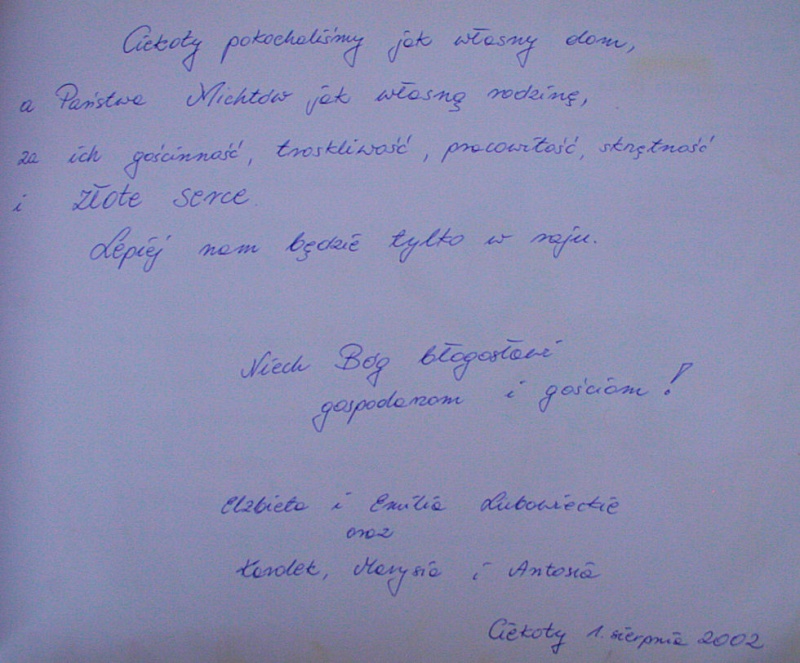 Ciekoty pokochaliśmy jak własny dom,
a Państwa Michtów jak własną rodzinę,
za ich gościnność, troskliwość, pracowitość, skrętność
i złote serce.
Lepiej nam będzie tylko w raju.
Niech Bóg błogosławi
gospodarzom i gościom!
Elżbieta i Emilia Lubowieckie
oraz
Karolek, Marysia i Antosia
Ciekoty 1. sierpnia 2002